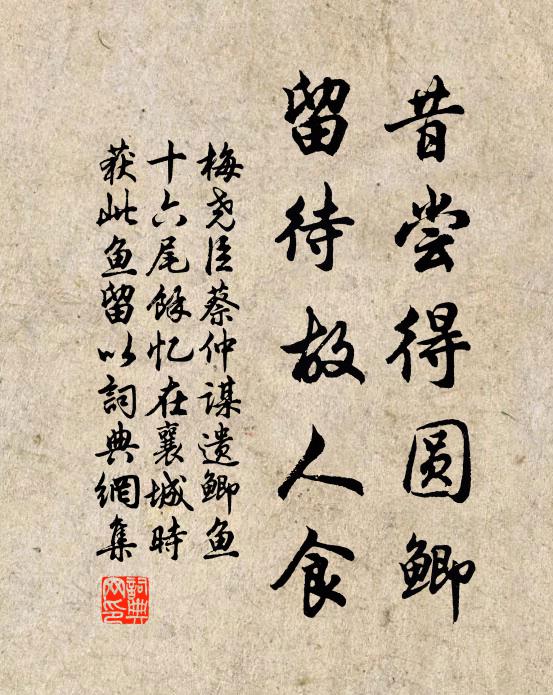 昔尝得圆鲫
留待故人食
梅尧臣蔡仲谋遗鲫鱼
十六尾馀忆在襄城时
获此鱼留以詞典網集
詞典
网印